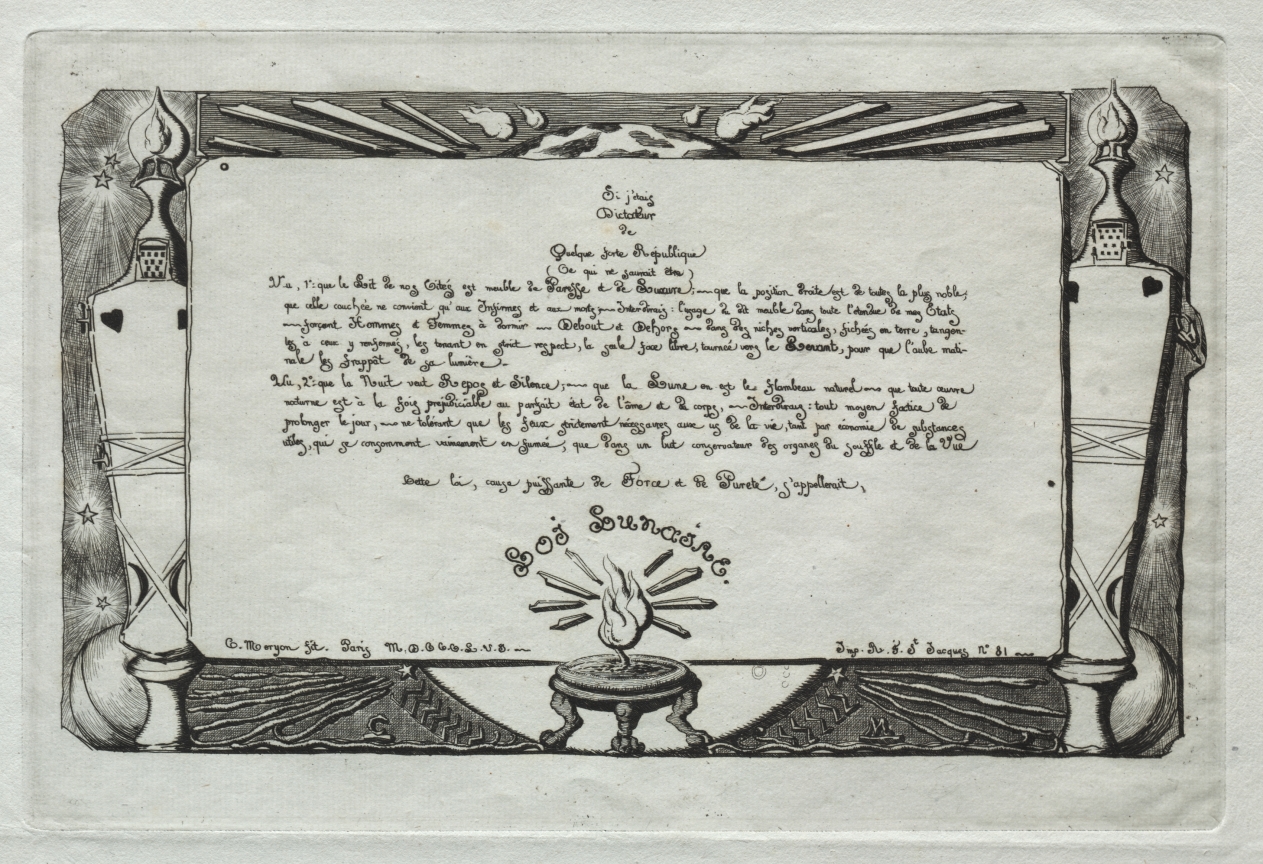 Si j'étais
Dictateur
de
Quelque forte République
(Ce qui ne saurait être)
Vu, 1º: que le Lit de nos Cités est meuble de Paresse et de Luxure; que la position droite est de toutes la plus noble;
que celle couchée ne convient qu'aux Infirmes et aux morts Interdirais: l'usage du dit meuble dans toute l'étendue de mes États
forçant Hommes et Femmes à dormir Debout et Dehors dans des niches verticales, fichées en terre, tangen-
tes à ceux y renfermés, les tenant en strict respect, la seule face libre, tournée vers le Levant, pour que l'aube mati-
nale les frappât de sa lumière.
Vu, 2º: que la Nuit veut Repos et Silence; que la Lune en est le flambeau naturel que toute œuvre
nocturne est à la fois préjudiciable au parfait état de l'âme et du corps, Interdirais: tout moyen factice de
prolonger le jour, ne tolérant que les feux strictement nécessaires aux us de la vie, tant par économie de substances
utiles, qui se consomment vainement en fumée, que dans un but conservateur des organes du souffle et de la Vue
Cette loi, cause puissante de Force et de Pureté, s'appellerait,
Loi Lunaire.
C. Meryon fit. Paris M.D.C.C.C.L.V.I. Imp. R. F. St Jacques Nº 81
C M